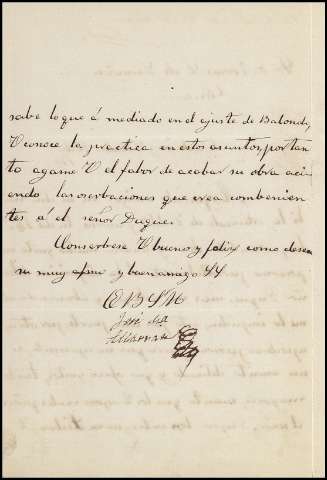 sabe lo que á mediado en el ajuste de Balonda,
V conoce la practica en estos asuntos, por tan
to agame V el fabor de acabar su obra aci
endo las oserbaciones que crea combenien
tes á el señor Duque.
Conserbese V bueno y felix como desea
su muy afmo y buen amigo SS
Q B S M
José